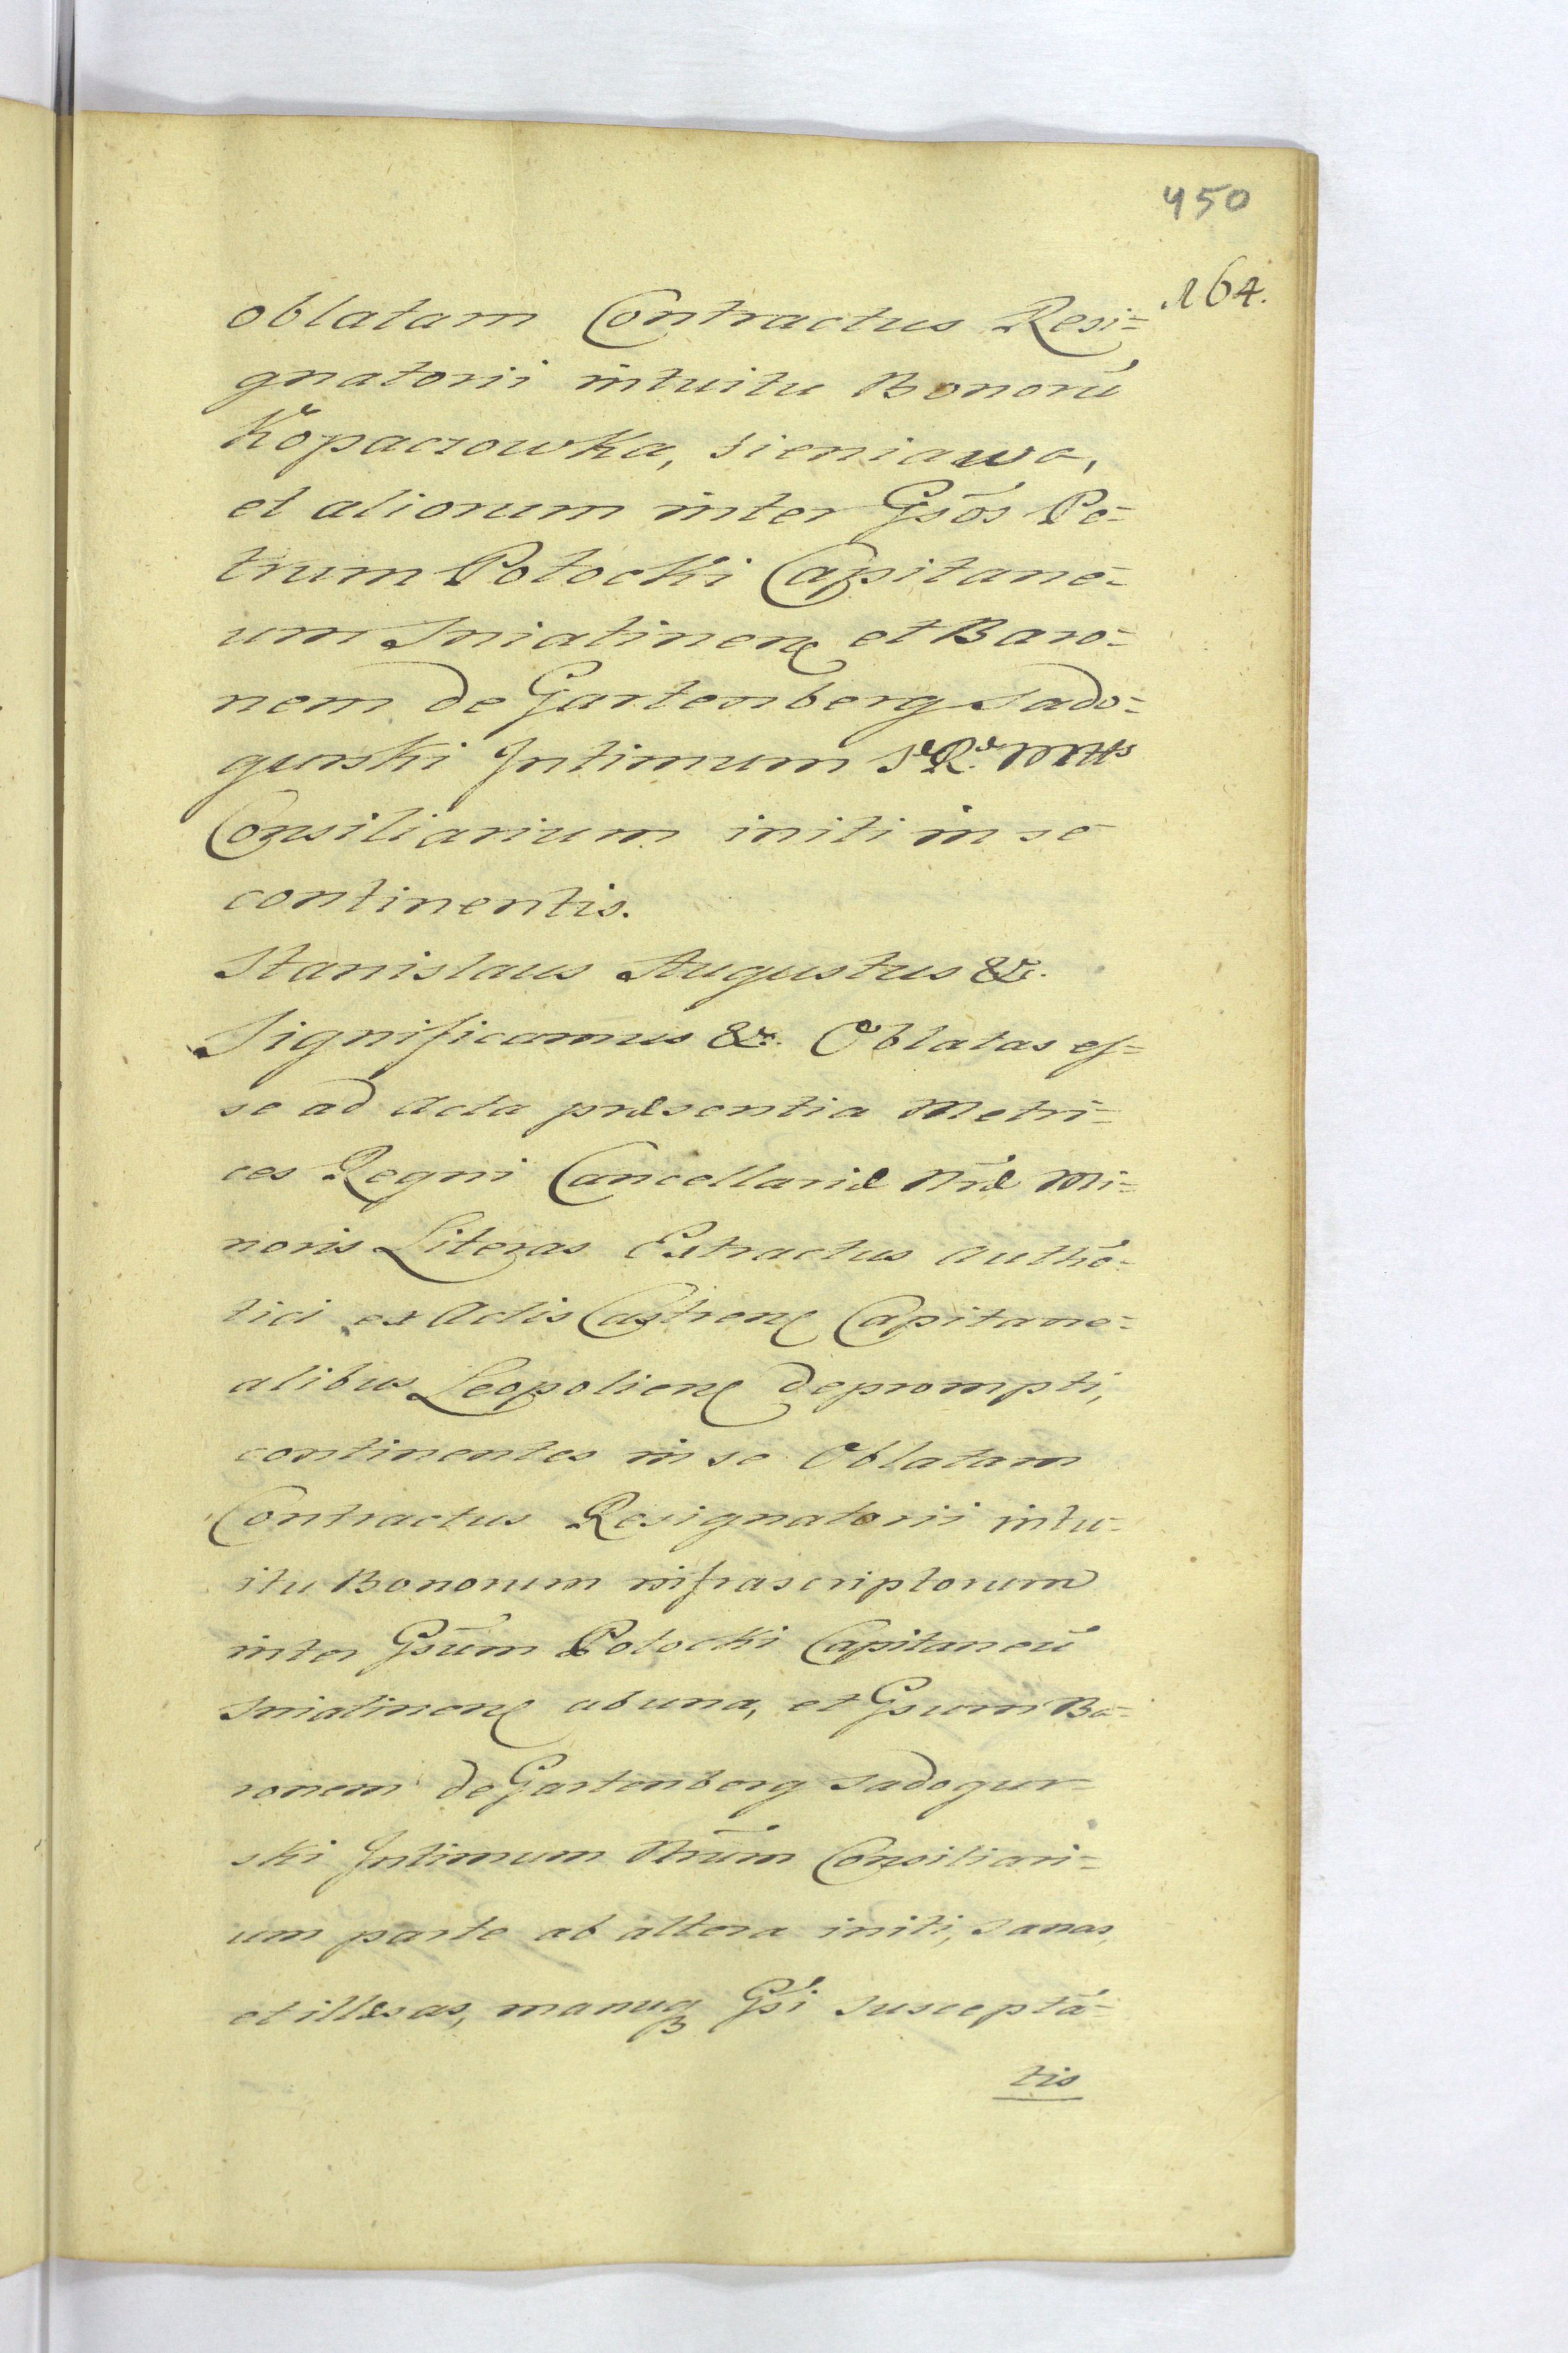 450
164.
oblatam Contractus Resi=
gnatorii intuitu Bonorū
Kopaczowka, Sieniawa,
et aliorum inter Gsōs Pe=
trum Potocki Capitane=
um Sniatinen et Baro=
nem de Gartenberg Sado=
gurski Intimum Sæ Ræ Mttis
Consiliarium initi in se
continentis.
Stanislaus Augustus &c.
Significamus &c. Oblatas es=
se ad Acta præsentia Metri=
ces Regni Cancellariæ Nr̄æ Mi=
noris Literas Extractus Authē=
tici ex Actis Castren Capitane=
alibus Leopolien deprompti,
continentes in se Oblatam
Contractus Resignatorii intu=
itu Bonorum infrascriptorum
inter Gsūm Potocki Capitaneū
Sniatinen ab una, et Gsum Ba=
ronem de Gartenberg Sadogur=
ski Intimum Nr̄um Consiliari=
um parte ab altera initi, sanas,
et illæsas, manuq Gsi Susceptā=
tis